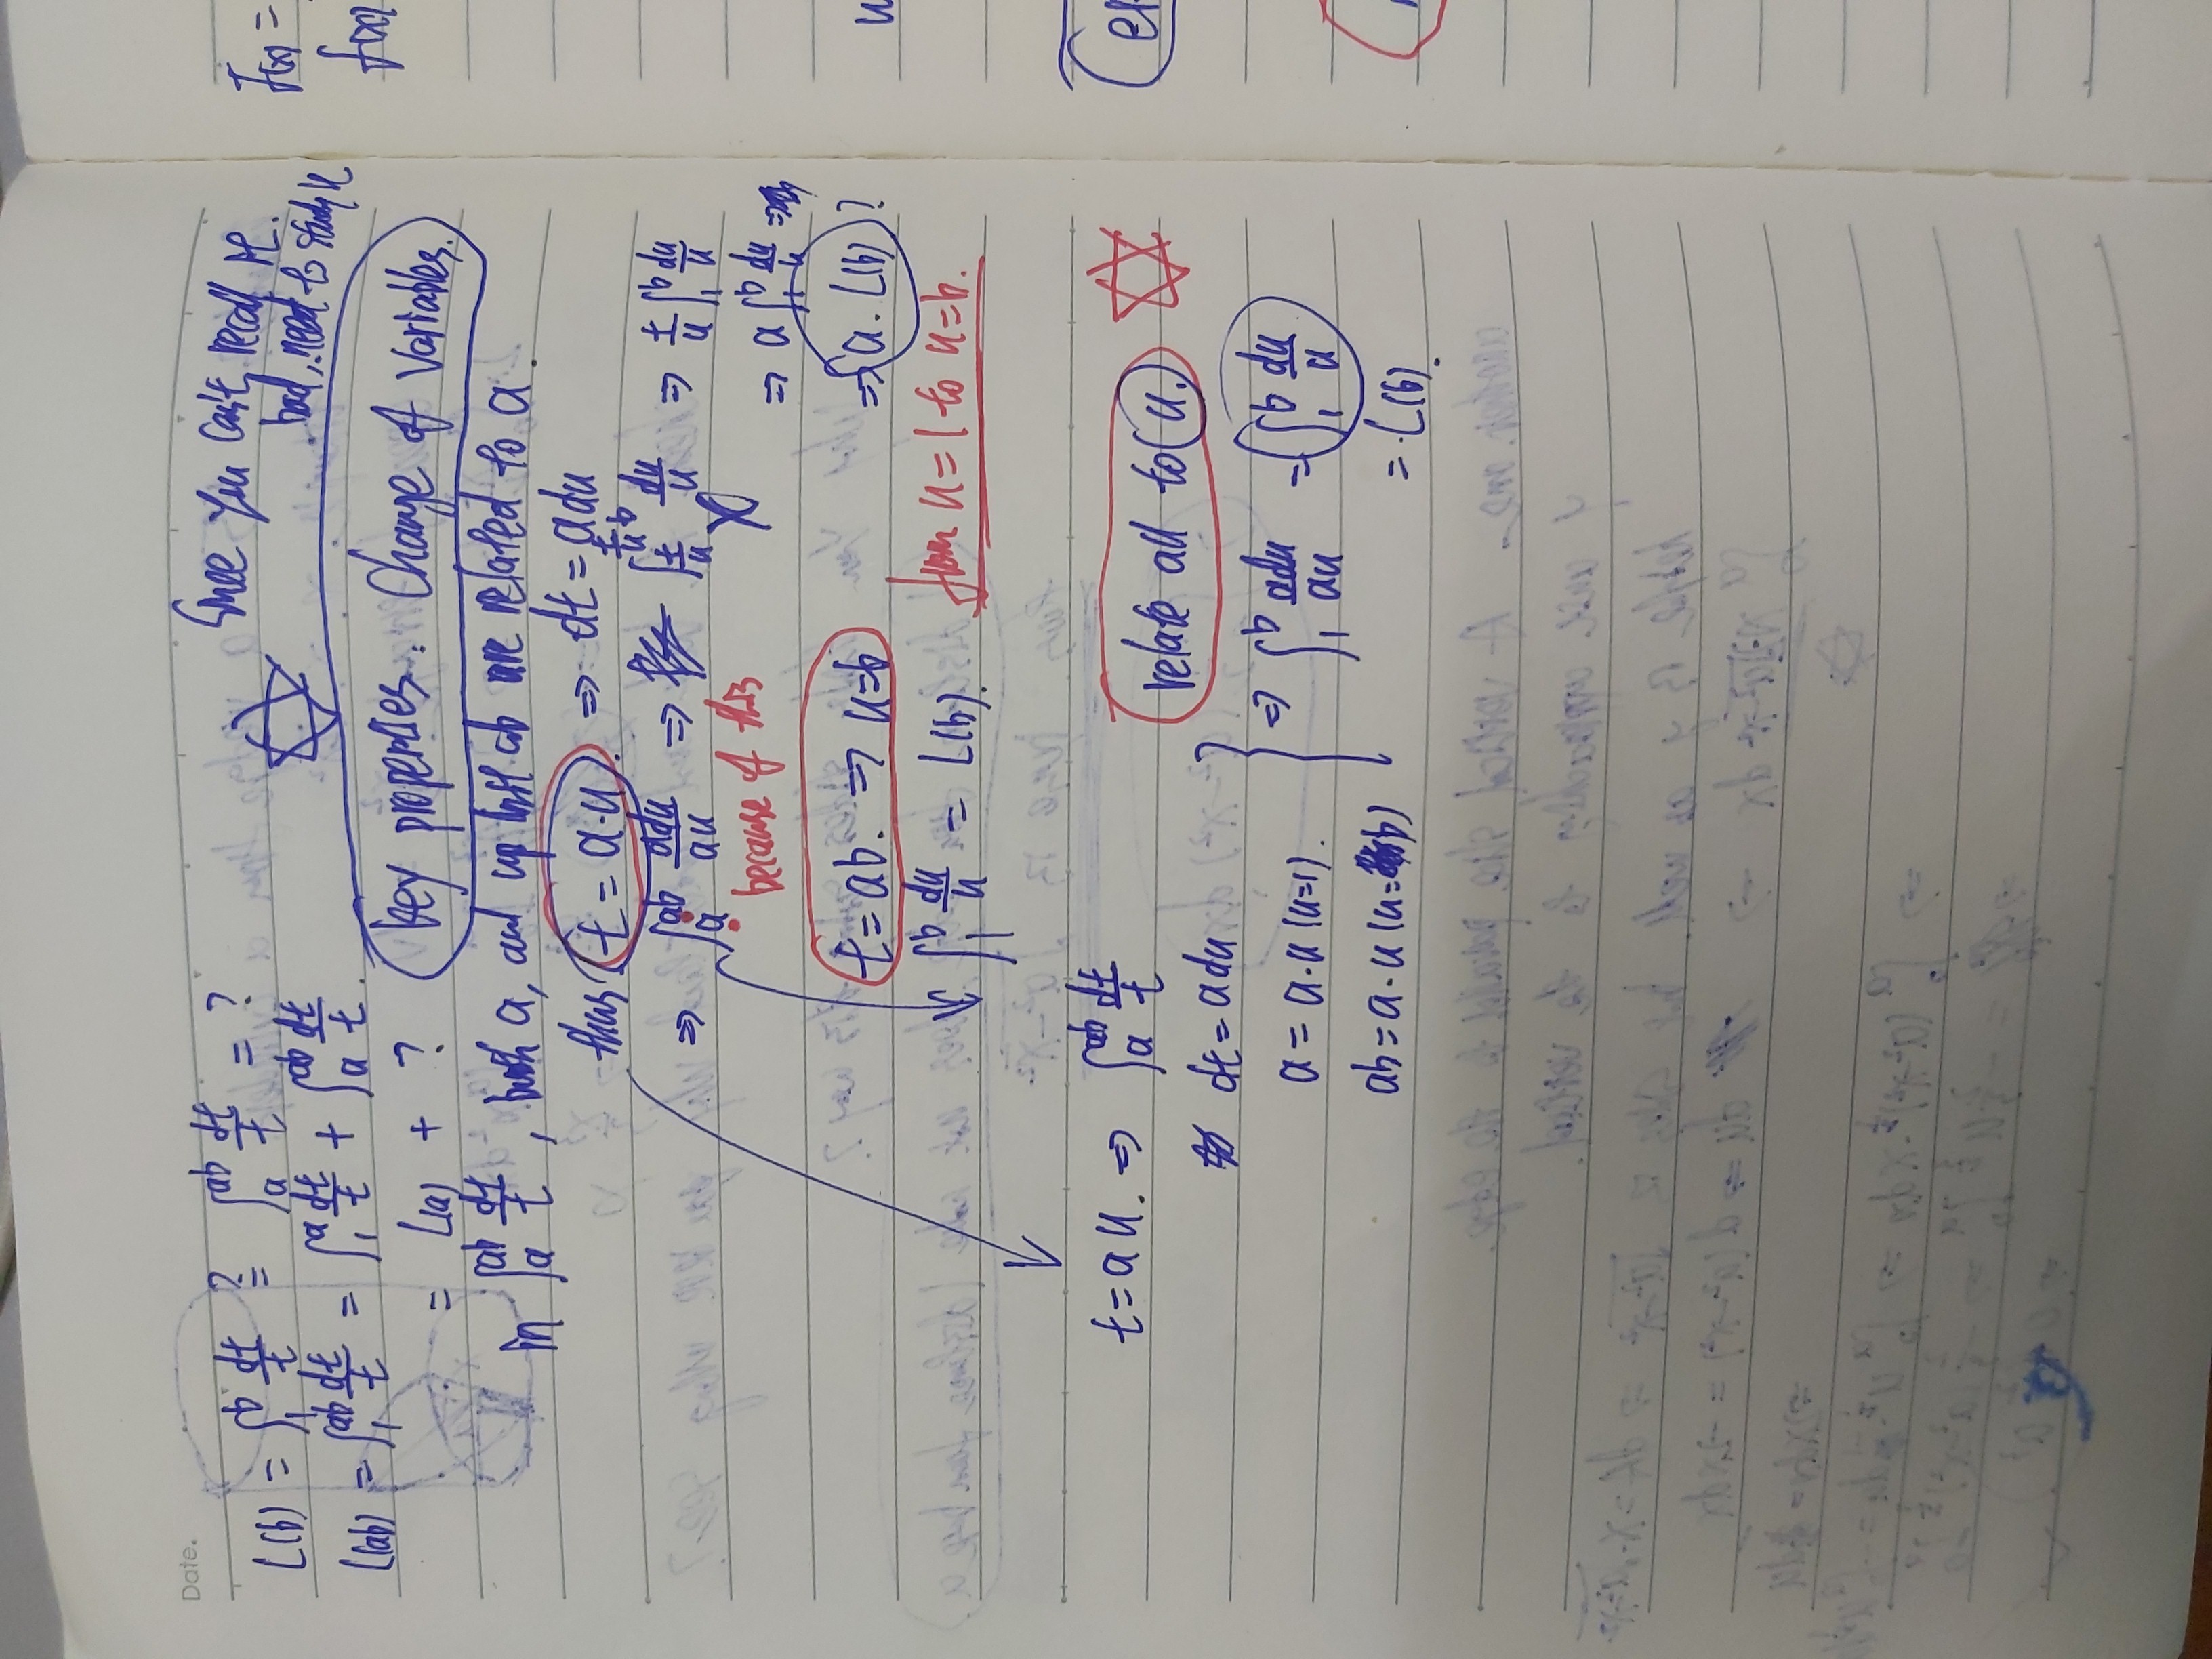 Date.
L(b) = ∫₁ᵇ dt/t ?= ∫ₐᵃᵇ dt/t = ?
Since you can't recall it.
bad, need to study it
L(ab) = ∫₁ᵃᵇ dt/t = ∫₁ᵃ dt/t + ∫ₐᵃᵇ dt/t.
= L(a) + ?
key properties. Change of variables.
in ∫ₐᵃᵇ dt/t, both a, and up limit ab are related to a.
thus t = a·u. ⇒ dt = a du
⇒ ∫ₐᵃᵇ adu/au ⇒ ∫_{t/u}^{t/u b} du/u ⇒ t/u ∫₁ᵇ du/u
because of this
⇒ a ∫₁ᵇ du/u ⇒
t = ab. ⇒ u=b
⇒ a. L(b) ?
∫₁ᵇ du/u = L(b).
from u=1 to u=b.
t = a u. ⇒ ∫ₐᵃᵇ dt/t
relate all to u.
dt = a du
a = a·u (u=1).
⇒ ∫₁ᵇ adu/au = ∫₁ᵇ du/u
ab = a·u (u=b)
= L(b).
f(x) =
f(x)